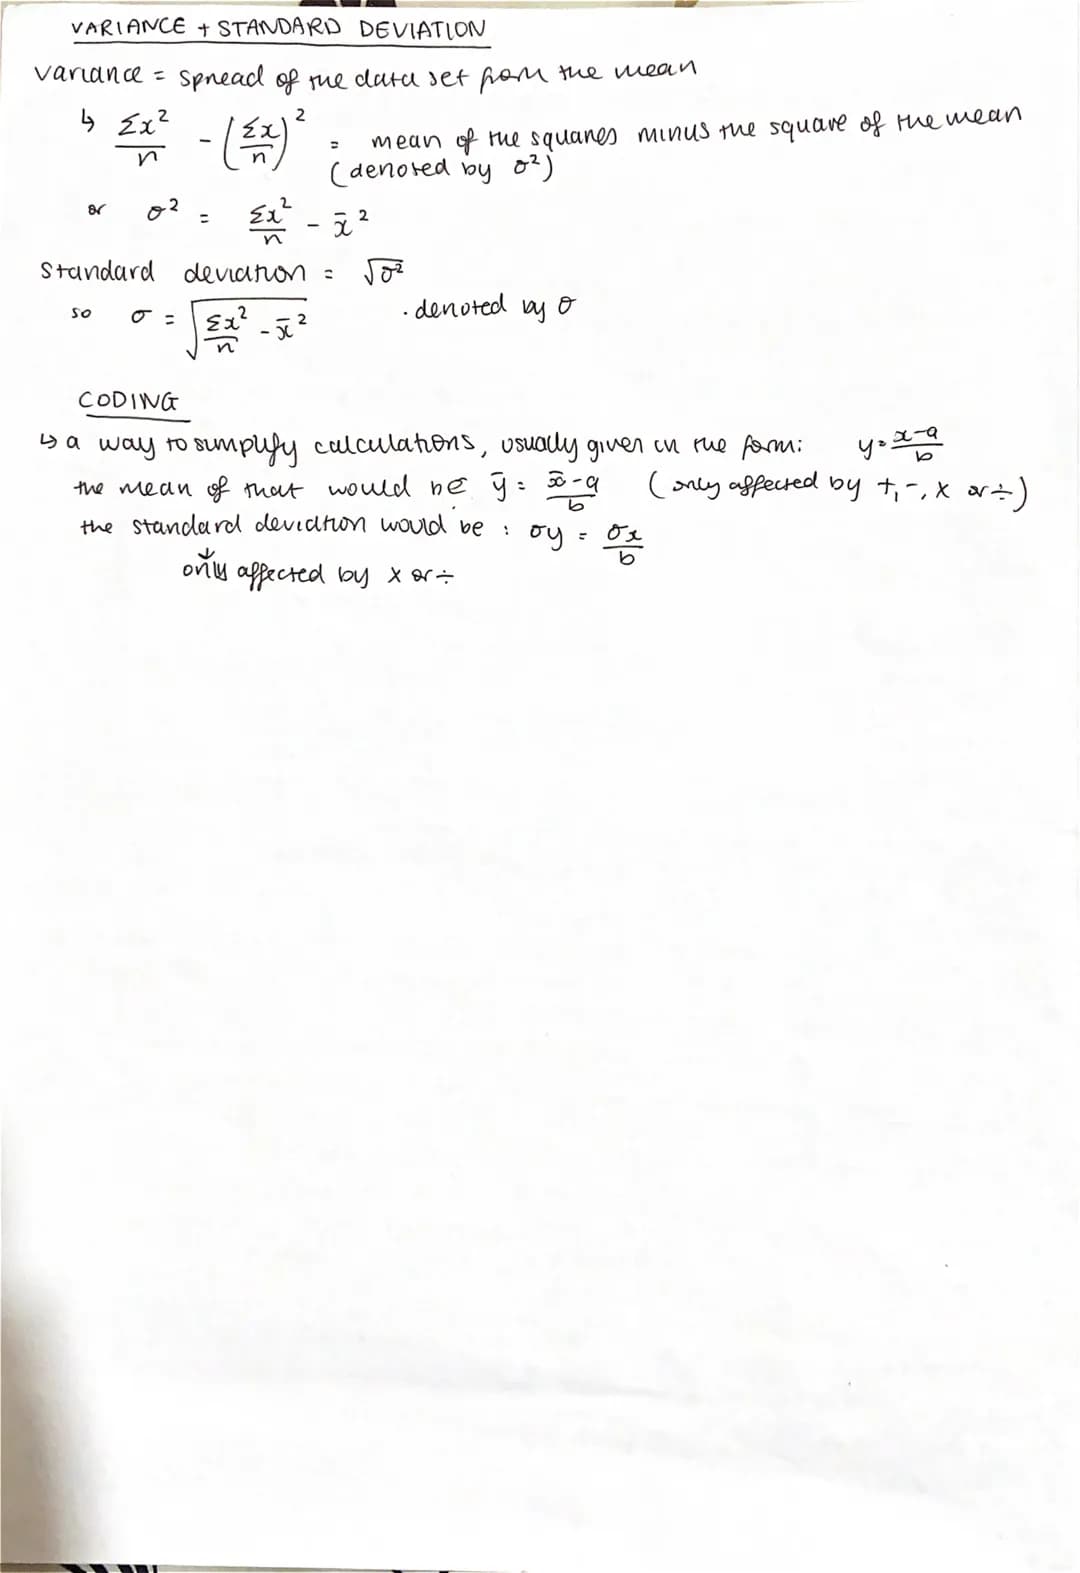 VARIANCE + STANDARD DEVIATION
variance = spread of the data set from the mean
↳ Σx²/n - (Σx/n)² = mean of the squares minus the square of the mean
(denoted by σ²)
or σ² = Σx²/n - x̄²
Standard deviation = √σ²
so σ = √(Σx²/n - x̄²) · denoted by σ
CODING
↳ a way to simplify calculations, usually given in the form: y = x-a/b
the mean of that would be ȳ = x̄-a/b (only affected by +, -, × or ÷)
the standard deviation would be : σy = σx/b
↓
only affected by × or ÷